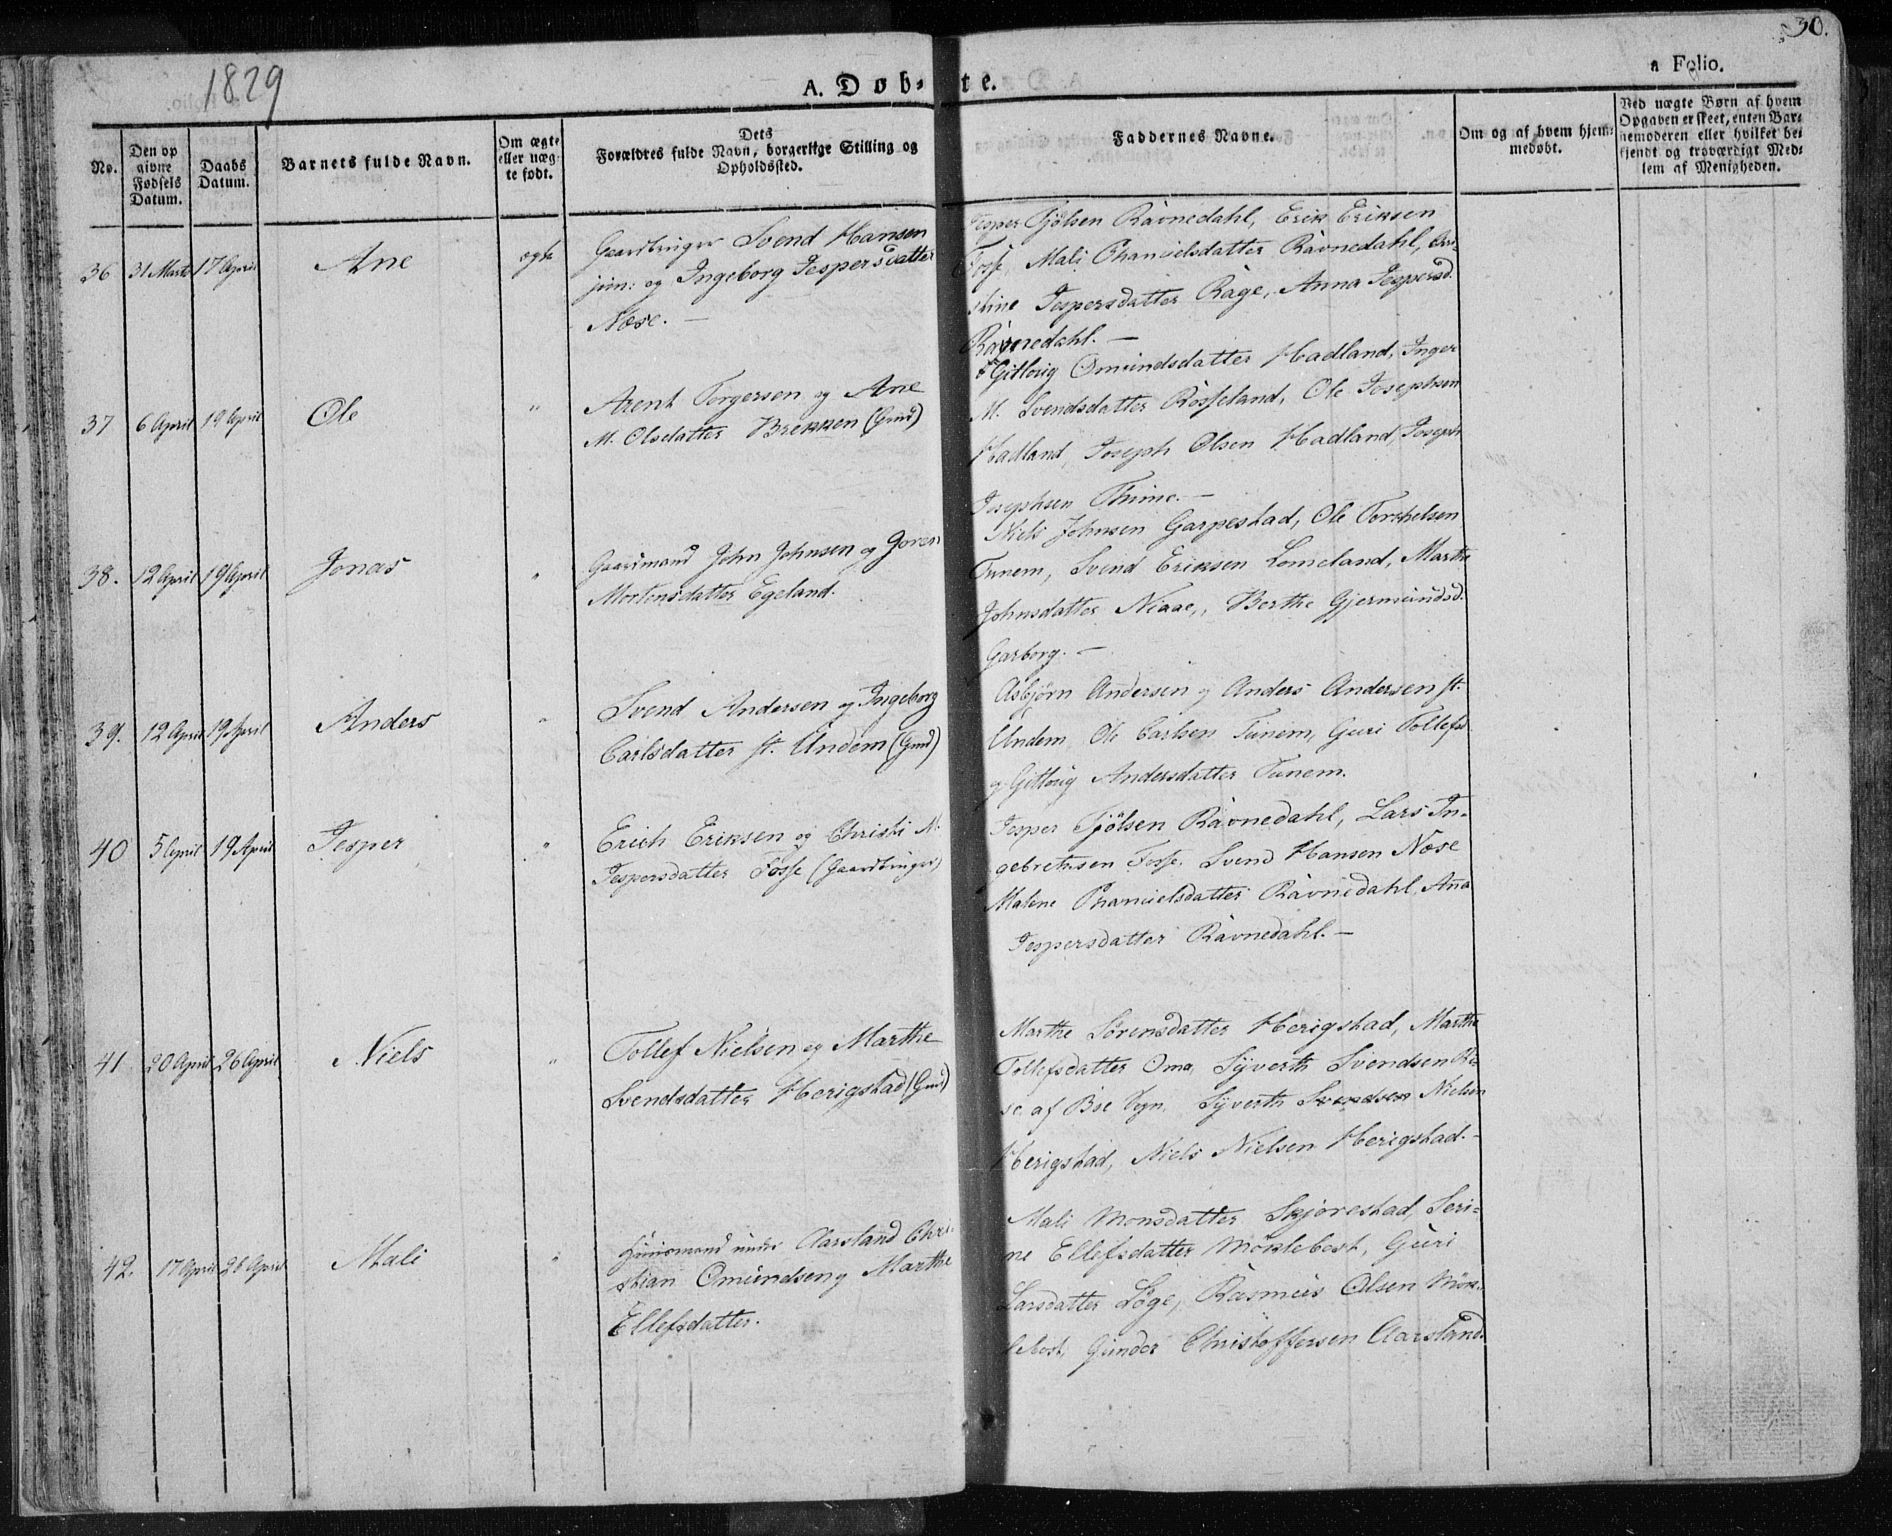 1829
A. Døb-te.
30.
a Folio.
No.
Den op
givne
Fødsels
Datum.
Daabs
Datum.
Barnets fulde Navn.
Om ægte
eller uæg-
te født.
Dets
Forældres fulde Navn, borgerlige Stilling og
Opholdssted.
Faddernes Navne.
Om og af hvem hjem-
medøbt.
Ved uægte Børn af hvem
Opgaven er skeet, enten Bar-
nemoderen eller hvilket be-
kjendt og troværdigt Med-
lem af Menigheden.
36 31 Marts 17 April Ane ægte
Gaardbruger Svend Hansen
jun: og Ingeborg Jespersdatter
Næse. —
Jesper Tjølsen Ravnedahl, Erik Eriksen
Fosse, Mali Phanuelsdatter Ravnedahl,
Jespersdatter Rage, Anna Jespersd.
Ravnedahl. —
37 6 April 19 April Ole "
Arent Torgersen og Ane
M. Olsdatter Brekken (Gmd)
Gitlovig Omundsdatter Hadland, Inger
M. Svendsdatter Rosseland, Ole Josephsen
Hadland, Joseph Olsen Hadland, Joseph
Josephsen Thime. —
38. 12 April 19 April Jonas "
Gaardmand John Johnsen og Goren
Mortensdatter Egeland.
Niels Johnsen Garpestad, Ole Torkelsen
Tunem, Svend Eriksen Lomeland, Marthe
Johnsdatter Niaae, Berthe Gjermundsd.
Garborg. —
39. 12 April 19 April Anders "
Svend Andersen og Ingeborg
Carlsdatter st. Undem (Gmd)
Asbjørn Andersen og Anders Andersen st.
Undem, Ole Carlsen Tunem, Guri Tollefsd
og Gitlovig Andersdatter Tunem.
40 5 April 19 April Jesper "
Erich Eriksen og Christi M.
Jespersdatter Fosse (Gaardbruger)
Jesper Tjølsen Ravnedahl, Lars In-
gebretsen Fosse. Svend Hansen Næse
Malene Phanuelsdatter Ravnedahl, Ana
Jespersdatter Ravnedahl. —
41 20 April 26 April Niels "
Tollef Nielsen og Marthe
Svendsdatter Herigstad (Gmd)
Marthe Sørensdatter Herigstad, Marthe
Tollefsdatter Oma, Syverth Svendsen
af Bøe Sogn, Syverth Svendsen Nielsen
Herigstad, Niels Nielsen Herigstad. —
42. 17 April 26 April Mali "
Huusmand under Aarsland Chri-
stian Omundsen og Marthe
Ellefsdatter.
Mali Monsdatter Skjørestad, Seri-
ne Ellefsdatter Møklebost, Guri
Larsdatter Løge, Rasmus Olsen Møk-
lebost, Gunder Christoffersen Aarsland.